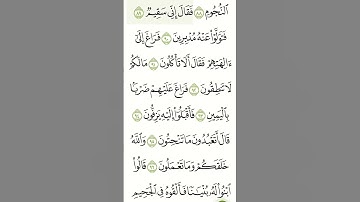 ٱلنُّجُومِ ٨٨ فَقَالَ إِنِّي سَقِيمٌ ٨٩
فَتَوَلَّوْا۟ عَنْهُ مُدْبِرِينَ ٩٠ فَرَاغَ إِلَىٰٓ
ءَالِهَتِهِمْ فَقَالَ أَلَا تَأْكُلُونَ ٩١ مَا لَكُمْ
لَا تَنطِقُونَ ٩٢ فَرَاغَ عَلَيْهِمْ ضَرْبًۢا
بِٱلْيَمِينِ ٩٣ فَأَقْبَلُوٓا۟ إِلَيْهِ يَزِفُّونَ ٩٤
قَالَ أَتَعْبُدُونَ مَا تَنْحِتُونَ ٩٥ وَٱللَّهُ
خَلَقَكُمْ وَمَا تَعْمَلُونَ ٩٦ قَالُوا۟
ٱبْنُوا۟ لَهُۥ بُنْيَـٰنًا فَأَلْقُوهُ فِى ٱلْجَحِيمِ